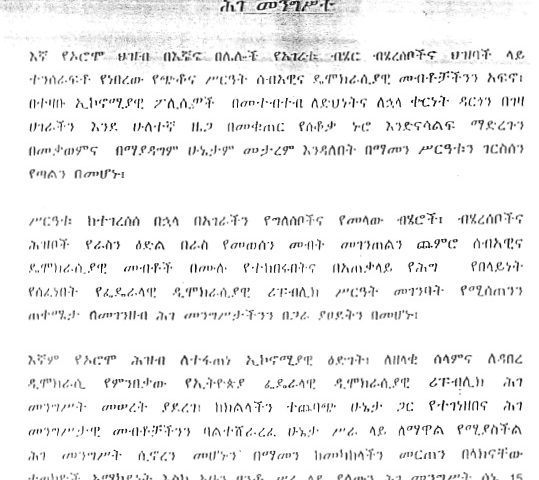 ሕገ መንግሥት
እኛ የኦሮሞ ህዝብ በእኛና በሌሎች የአገሪቱ ብሄር ብሄረሰቦችና ህዝባች ላይ
ተንሰራፍቶ የነበረው የጭቆና ሥርዓት ሰብአዊና ዴሞክራሲያዊ መብቶቻችንን አፍኖ፣
በተዛቡ ኢኮኖሚያዊ ፖሊሲዎች በመተብተብ ለድህነትና ለኋላ ቀርነት ዳርጎን በገዛ
ሀገራችን እንደ ሁለተኛ ዜጋ በመቁጠር የሰቆቃ ኑሮ እንድናሳልፍ ማድረጉን
በመቃወምና በማያዳግም ሁኔታም መታረም እንዳለበት በማመን ሥርዓቱን ገርስሰን
የጣልን በመሆኑ፣
ሥርዓቱ ከተገረሰሰ በኋላ በአገራችን የግለሰቦችና የመላው ብሄሮች፣ ብሄረሰቦችና
ሕዝቦች የራስን ዕድል በራስ የመወሰን መብት መገንጠልን ጨምሮ ሰብአዊና
ዴሞክራሲያዊ መብቶች በሙሉ የተከበሩበትና በአጠቃላይ የሕግ የበላይነት
የሰፈነበት የፌዴራላዊ ዲሞክራሲያዊ ሪፐብሊክ ሥርዓት መገንባት የሚሰጠንን
ጠቀሜታ በመገንዘብ ሕገ መንግሥታችንን በጋራ ያፀደቅን በመሆኑ፣
እኛም የኦሮሞ ሕዝብ ለተፋጠነ ኢኮኖሚያዊ ዕድገት፣ ለዘላቂ ሰላምና ለዳበረ
ዲሞክራሲ የምንበቃው የኢትዮጵያ ፌዴራላዊ ዲሞክራሲያዊ ሪፐብሊክ ሕገ
መንግሥት መሠረት ያደረገ፣ ከክልላችን ተጨባጭ ሁኔታ ጋር የተገነዘበና ሕገ
መንግሥታዊ መብቶቻችንን ባልተሸራረፈ ሁኔታ ሥራ ላይ ለማዋል የሚያስችል
ሕገ መንግሥት ሲኖረን መሆኑን በማመን ከመካከላችን መርጠን በላክናቸው
ተወካዮች አማካይነት እስከ አሁን ፀንቶ ሥራ ላይ ያለውን ሕገ መንግሥት ሰኔ 15